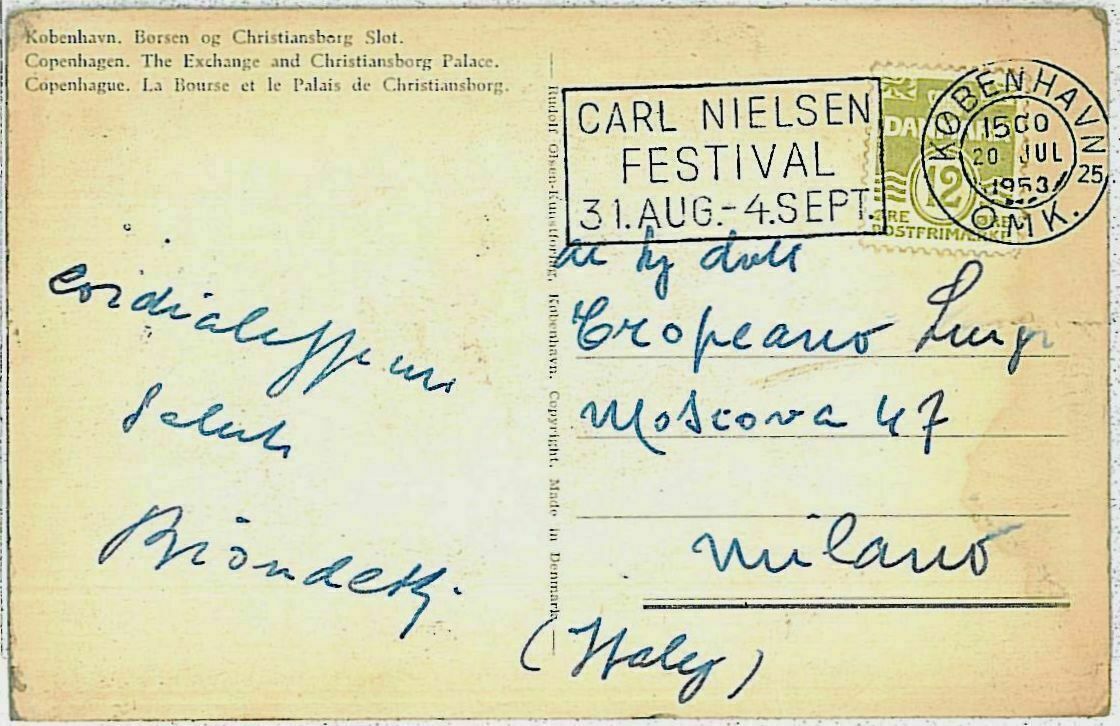 København. Børsen og Christiansborg Slot.
Copenhagen. The Exchange and Christiansborg Palace.
Copenhague. La Bourse et le Palais de Christiansborg.
Rudolf Olsen-Kunstforlag, København. Copyright. Made in Denmark
CARL NIELSEN
FESTIVAL
31.AUG.-4.SEPT.
DANMARK
12
ØRE ØRE
POSTFRIMÆRKE
KØBENHAVN
1500
20 JUL
1953
25
OMK.
Tropeano Luigi
Moscova 47
Milano
(Italy)
cordialissimi
saluti
Biondetti